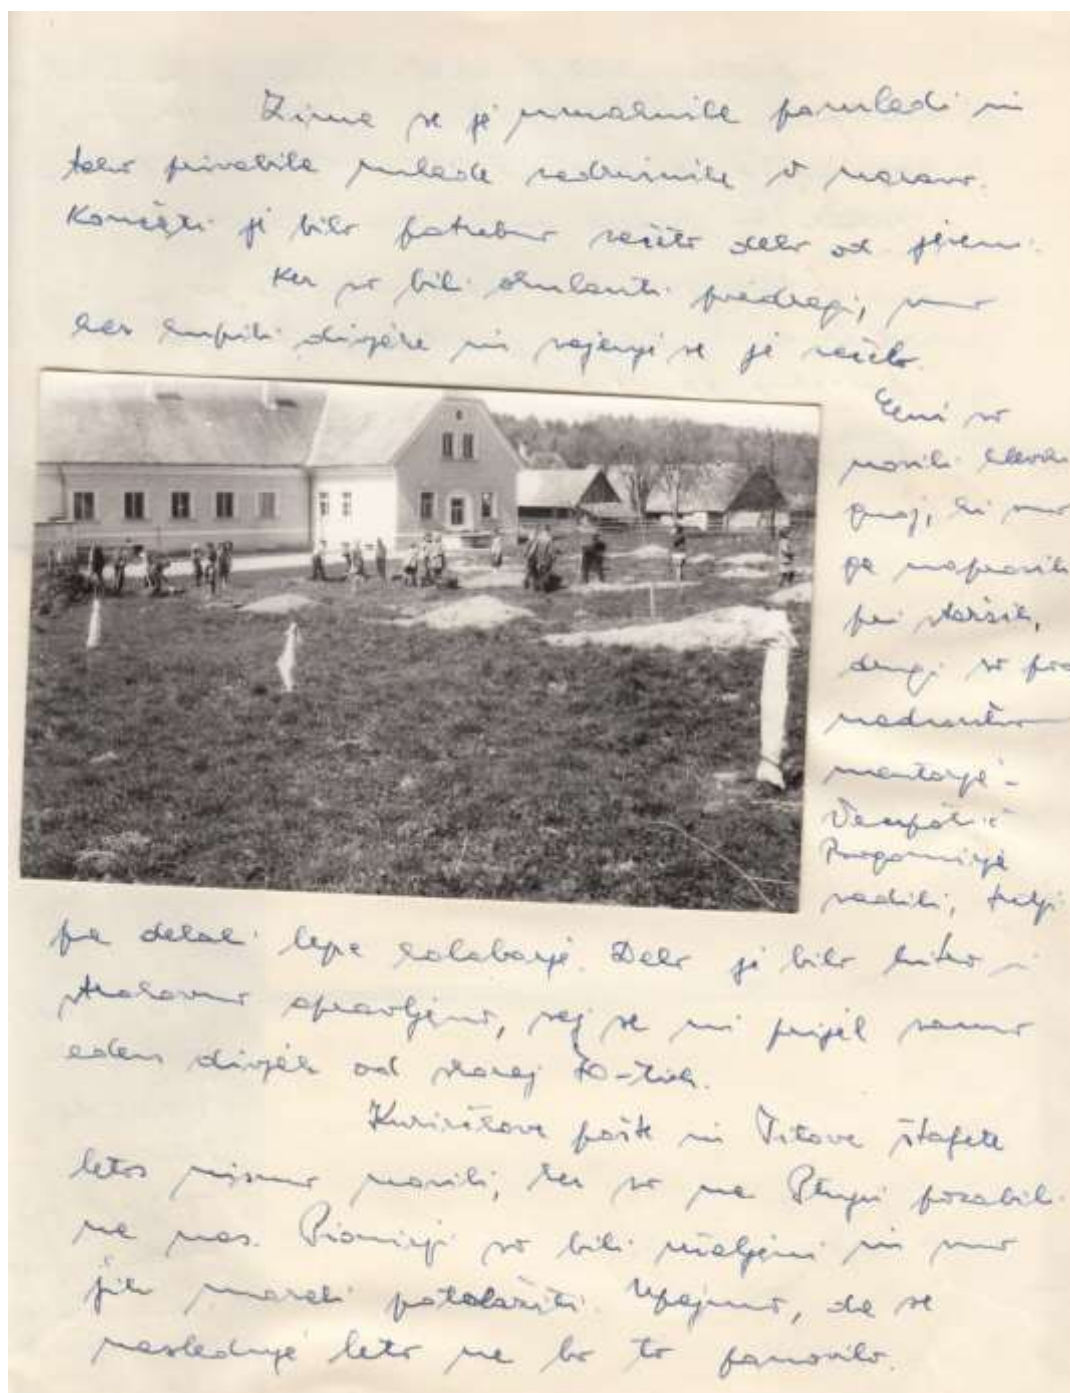 Zima se je umaknila pomladi in
tako privabila mlade zadružnike v naravo.
Končati je bilo potrebno začeto delo od jeseni.
Ker so bili predragi, smo
kupili divjake in sajenje se je začelo.
Eni so
nosili hlevski
gnoj, ki smo
ga naprosili
pri starših,
drugi so pod
nadzorstvom
mentorja
sadili, tretji
pa delali lepe kolobarje. Delo je bilo hitro in
strokovno opravljeno, saj se ni prijel samo
eden divjak od skoraj 70-tih.
Kurirčkove pošte in Titove štafete
letos nismo nosili, ker so na Ptuju pozabili
na nas. Pionirji so bili užaljeni in smo
jih morali potolažiti. Upajmo, da se
naslednje leto ne bo to ponovilo.